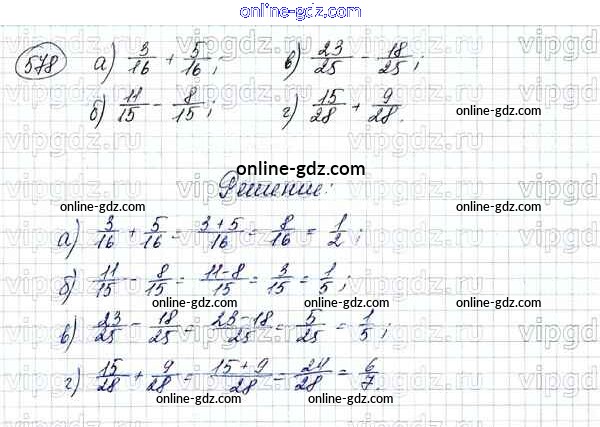 online-gdz.com
578 а) 3/16 + 5/16; в) 23/25 - 18/25;
б) 11/15 - 8/15; г) 15/28 + 9/28.
online-gdz.com online-gdz.com
online-gdz.com
Решение:
online-gdz.com online-gdz.com
а) 3/16 + 5/16 = 3+5/16 = 8/16 = 1/2;
online-gdz.com
б) 11/15 - 8/15 = 11-8/15 = 3/15 = 1/5;
online-gdz.com online-gdz.com
в) 23/25 - 18/25 = 23-18/25 = 5/25 = 1/5;
online-gdz.com
г) 15/28 + 9/28 = 15+9/28 = 24/28 = 6/7.
online-gdz.com online-gdz.com
vipgdz.ru